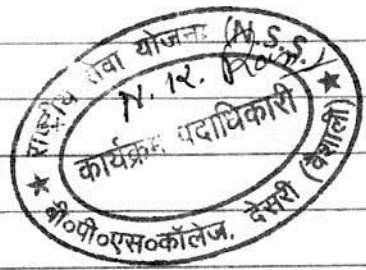 राष्ट्रीय सेवा योजना (N.S.S.)
N. K. Ram
कार्यक्रम पदाधिकारी
बी०पी०एस०कॉलेज, देसरी (वैशाली)